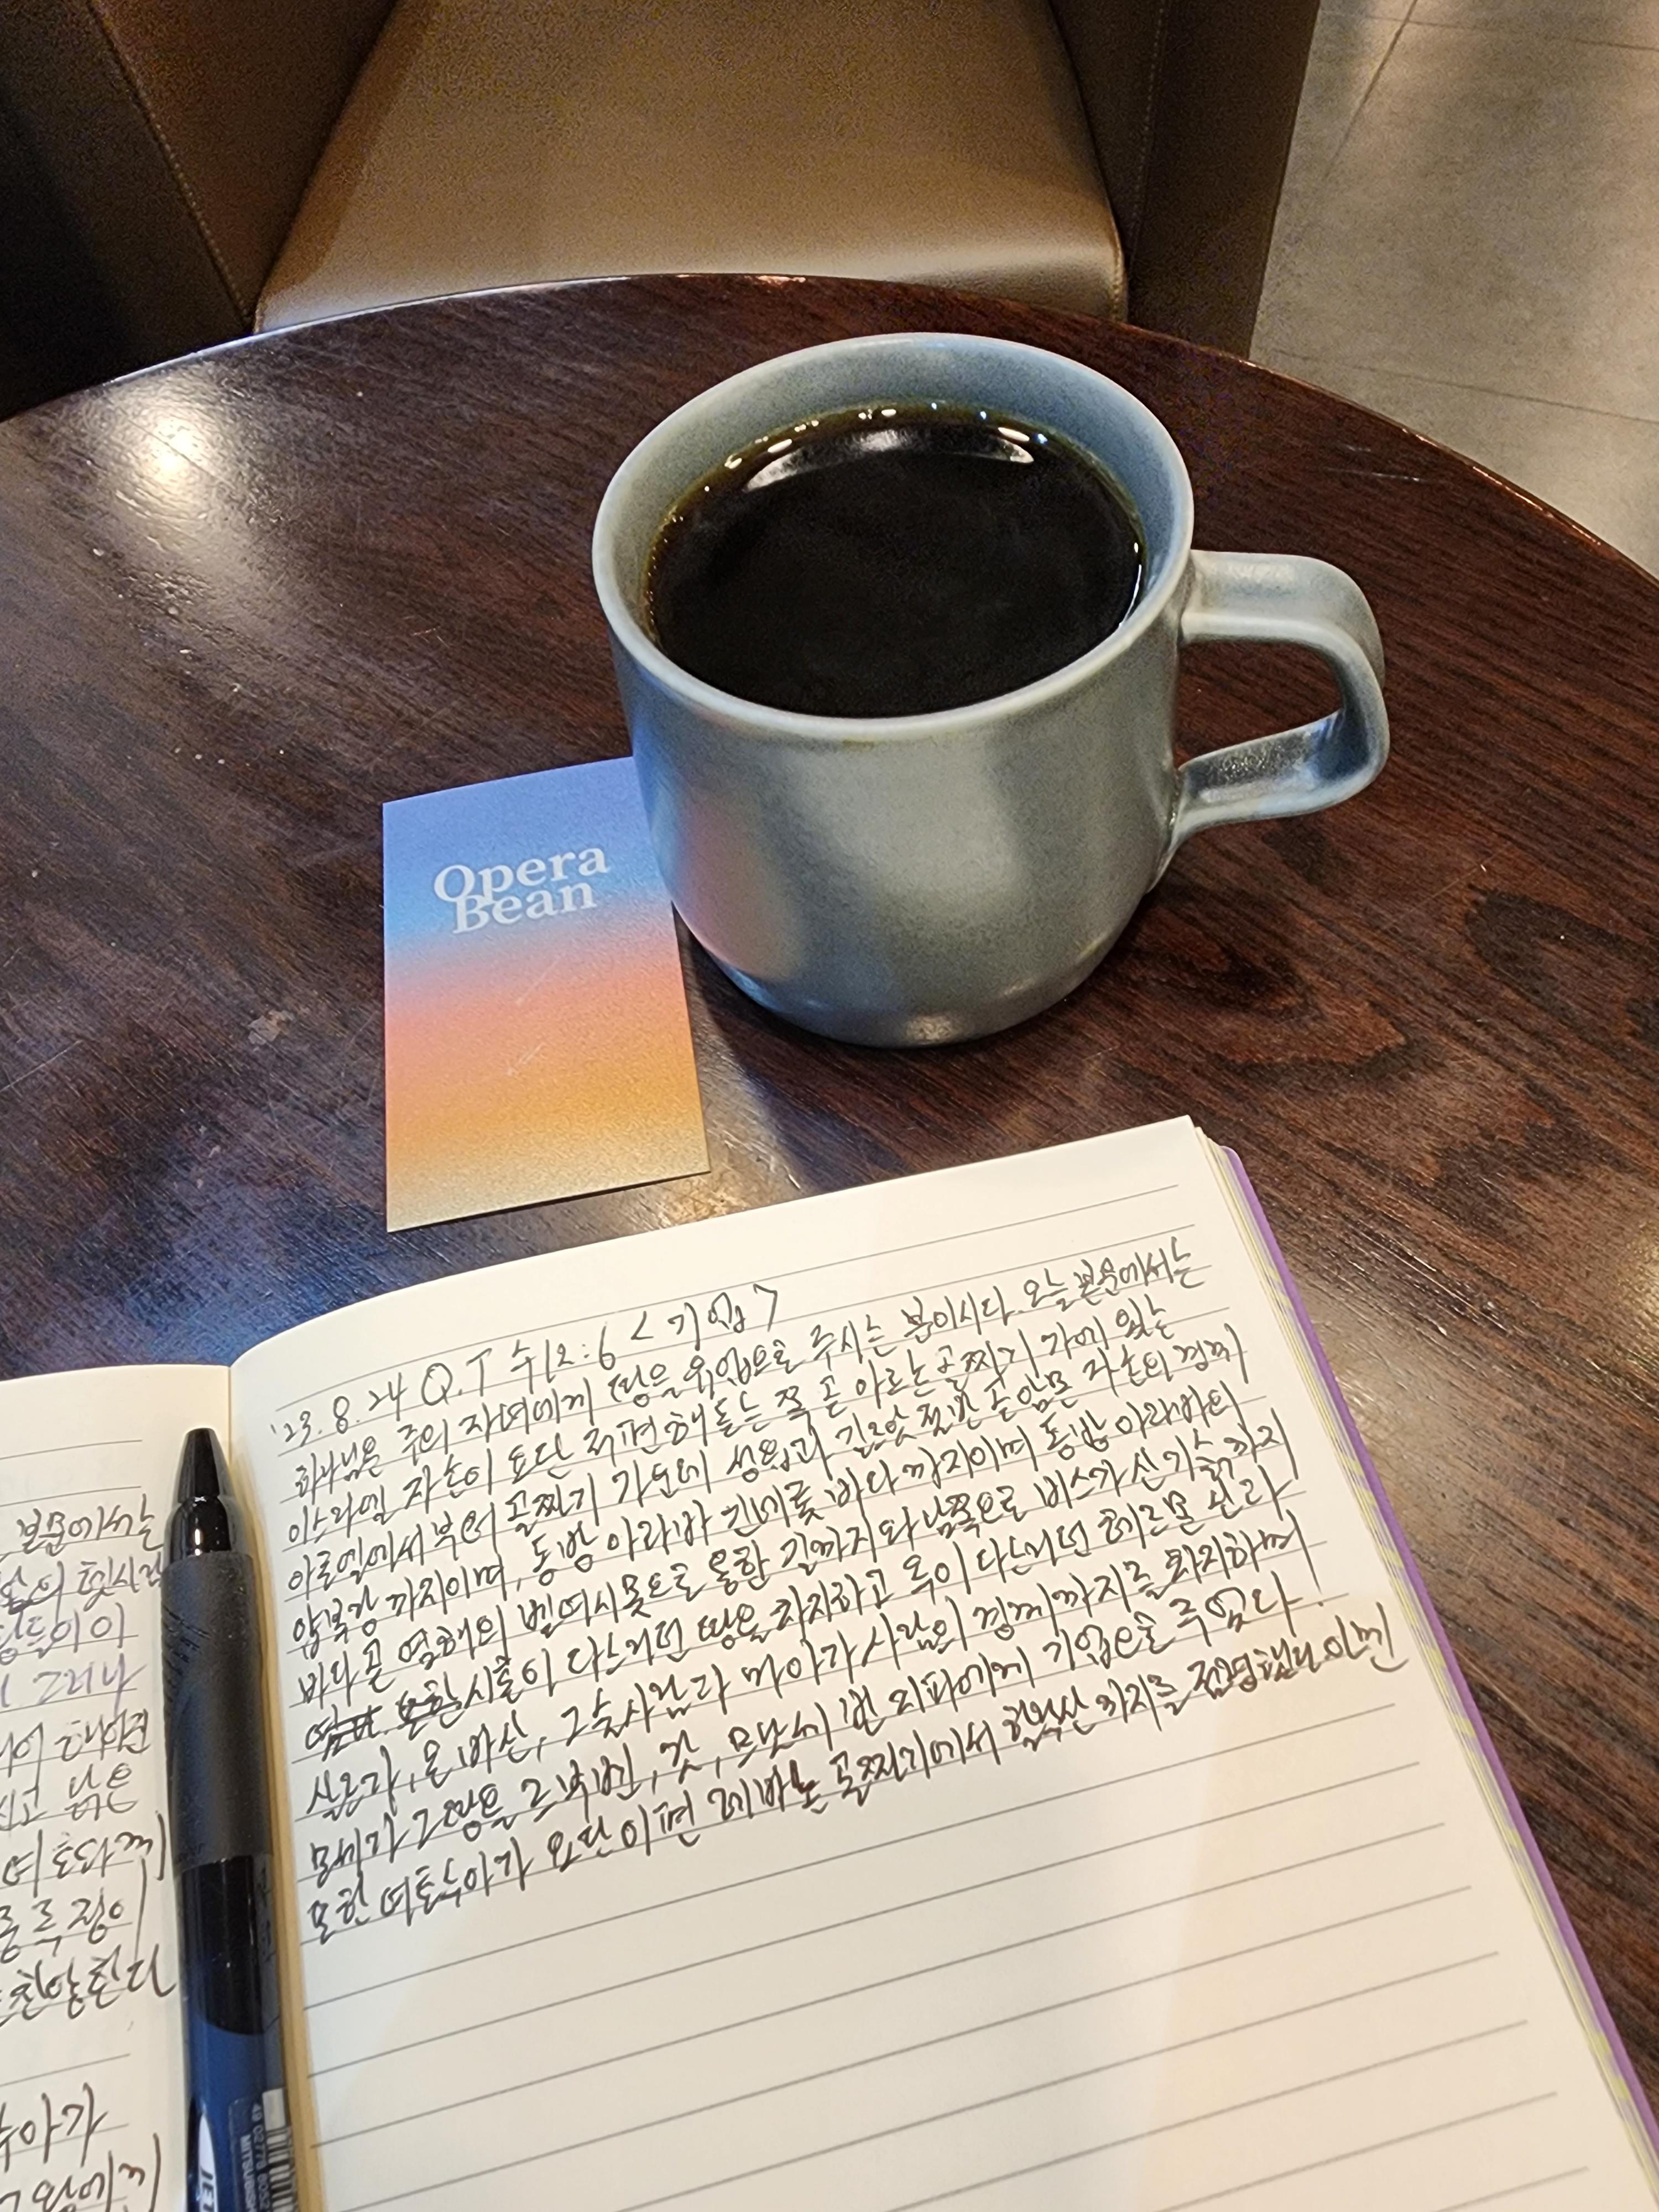 Opera
Bean
'23. 8. 24 Q.T 수12:6 <기업>
하나님은 주의 자녀에게 땅을 기업으로 주시는 분이시다. 오늘 본문에서는
이스라엘 자손이 요단 저편 해 돋는 쪽 곧 아르논 골짜기 가에 있는
아로엘에서부터 골짜기 가운데 성읍과 길르앗 절반 곧 암몬 자손의 경계
얍복강 까지이며, 동방 아라바 긴네롯 바다까지이며 동방 아라바의
바다 곧 염해의 벧여시못으로 통한 길까지와 남쪽으로 비스가 산기슭까지
시혼이 다스리던 땅을 차지하고 옥이 다스리던 헤르몬 산과
살르가, 온 바산, 그술 사람과 마아가 사람의 경계까지를 차지하며
모세가 그 땅을 르우벤, 갓, 므낫세 반 지파에게 기업으로 주었다.
또한 여호수아가 요단 이편 레바논 골짜기에서 할락산 까지를 점령했다
본문에서는
들이이
그러나
고 남은
찬양한다
수아가
JET
MITSUBISHI